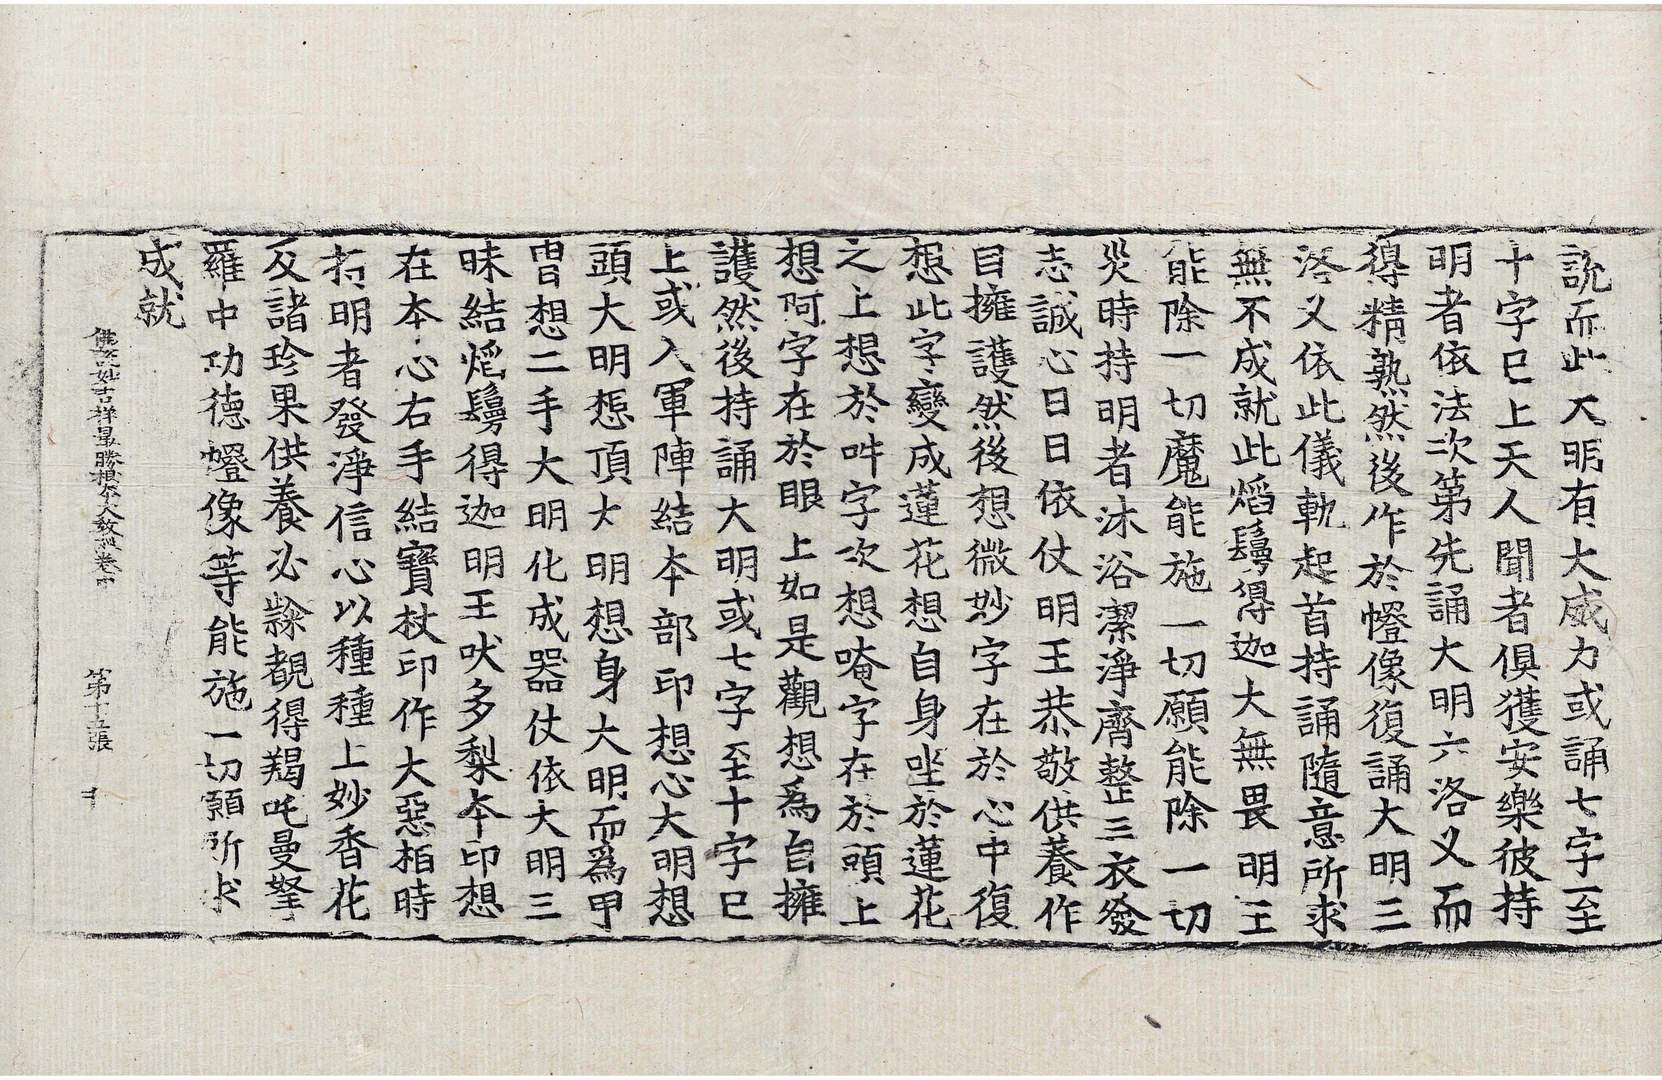 說而此大明有大威力或誦七字至
十字已上天人聞者俱獲安樂彼持
明者依法次第先誦大明六洛叉而
得精熟然後作於㡧像復誦大明三
洛叉依此儀軌起首持誦隨意所求
無不成就此熖鬘得迦大無畏明王
能除一切魔能施一切願能除一切
災時持明者沐浴潔淨齊整三衣發
志誠心日日依仗明王恭敬供養作
目擁護然後想微妙字在於心中復
想此字變成蓮花想自身坐於蓮花
之上想於吽字次想唵字在於頭上
想阿字在於眼上如是觀想爲自擁
護然後持誦大明或七字至十字已
上或入軍陣結本部印想心大明想
頭大明想頂大明想身大明而爲甲
冑想二手大明化成器仗依大明三
昧結熖鬘得迦明王吠多梨本印想
在本心右手結寶杖印作大惡相時
持明者發淨信心以種種上妙香花
及諸珍果供養必𨽻覩得羯吒曼拏
羅中功德㡧像等能施一切願所求
成就
佛說妙吉祥最勝根本大教經卷中 第十五張 キ